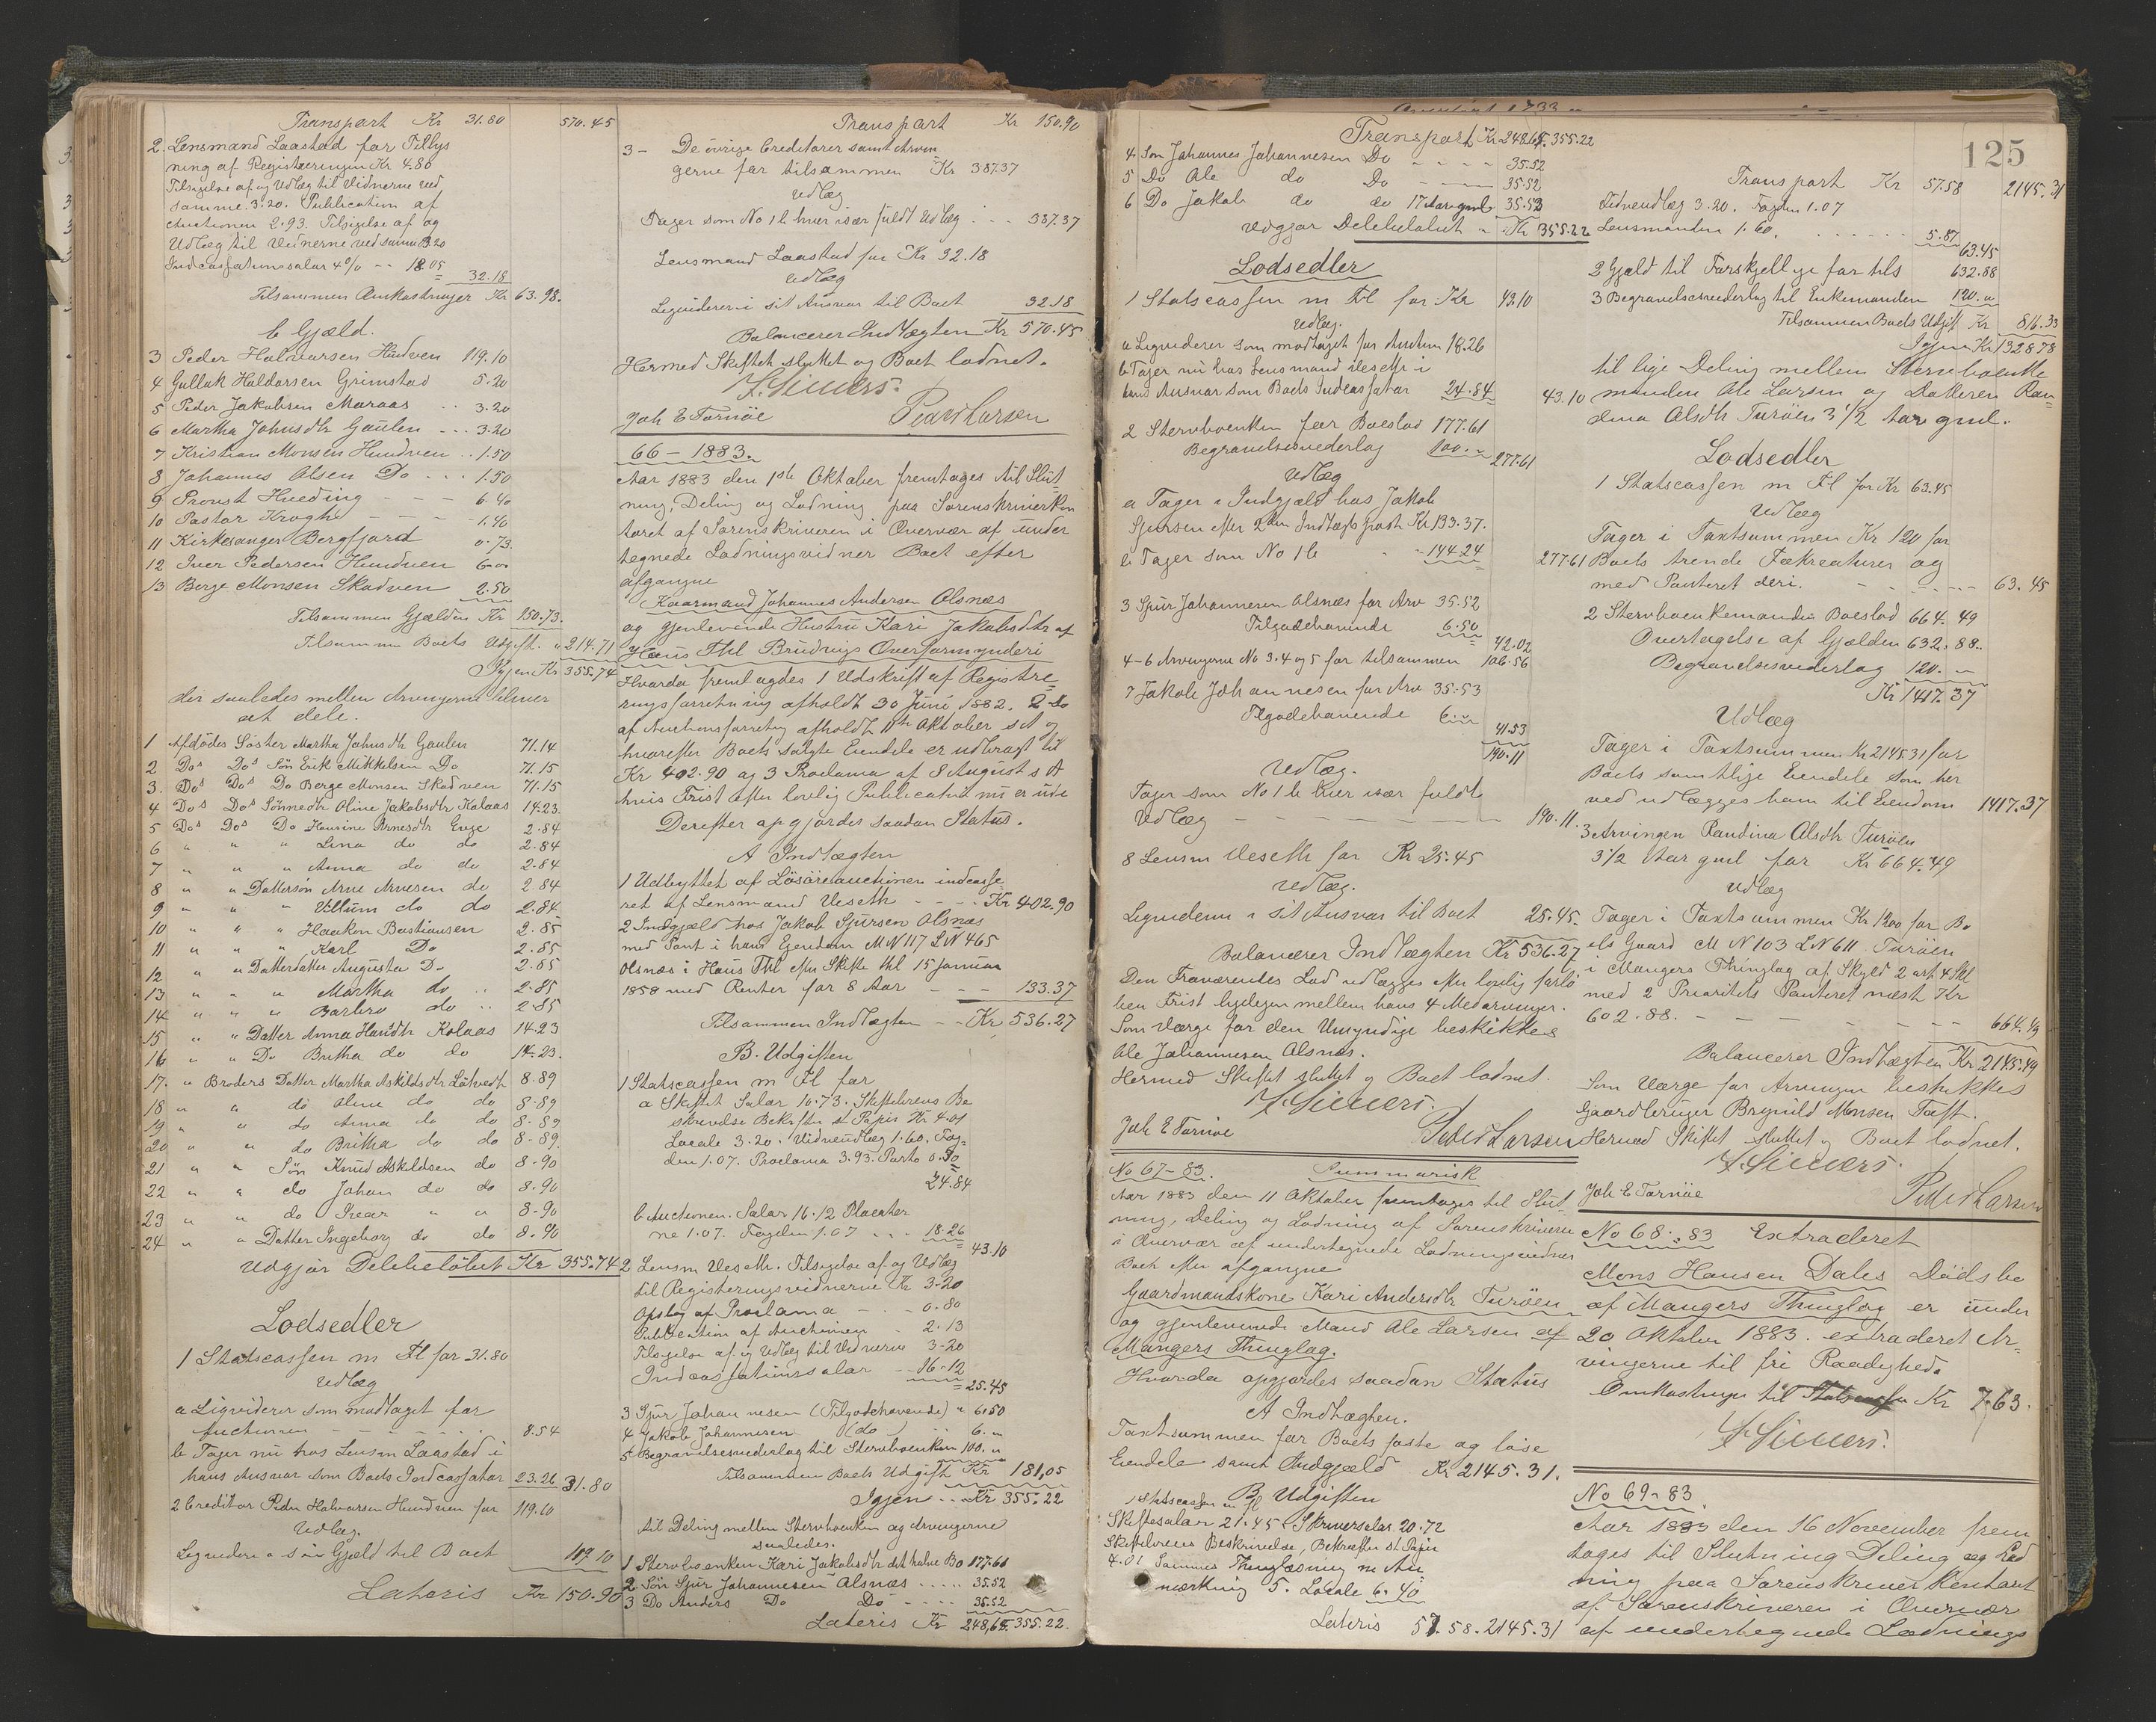 Transport Kr 31.80 570.45
2. Lensmand Laastad for Tillys
ning af Registreringen Kr 4.80
Tilsigelse af og Udlæg til Vidnerne ved
samme 3.20. Publication af
Auctionen 2.93. Tilsigelse af og
Udlæg til Vidnerne ved samme 3.20
Indcassationssalar 4% -- 18.05 32.18
Tilsammen Omkostninger Kr 63.98.
C Gjæld.
3 Peder Halvorsen Hundven 119.10
4 Gulluk Haldorsen Grimstad 5.20
5 Peder Jakobsen Maraas .. 3.20
6 Martha Johnsdtr Gaulen ... 3.20
7 Kristian Monsen Hundven .. 1.50
8 Johannes Olsen Do ... 1.50
9 Provst Hveding - - - 6.40
10 Pastor Krogh - - - 1.40
11 Kirkesanger Bergfjord 0.73.
12 Iver Pedersen Hundven 6-00
13 Berge Monsen Skodven 2.50
Tilsammen Gjælden Kr 150.73.
Tilsammen Boets Udgift. " 214.71
Igjen Kr 355.74
der saaledes mellem Arvingerne bliver
at dele.
1 Afdødes Søster Martha Johnsdtr Gaulen 71.14
2 Dos Dos Søn Erik Mikkelsen Do 71.15
3. Dos Dos Do Berge Monsen Skodven 71.15
4 Dos Dos Sønnedtr Oline Jakobsdtr Kolaas 14.23.
5 Dos Dos Do Arnesdtr 2.84
6 " " " Lina do do 2.84
7 " " " Anna do do 2.84
8 " " Dattersøn Arne Arnesen do 2.84
9 " " " Villum do do 2.84.
10 " " " Haaken Bastiansen 2.85
11 " " " Karl Do 2.85
12 " " Datterdatter Augusta Do 2.85
13 " " " Martha do .. 2.85
14 " " " Barbro do .. 2.85
15 " " Datter Anna Hansdtr Kolaas 14-23
16 " " Do Britha do do 14-23.
17. " Broders Datter Martha Askildsdtr Låtvedt 8.89
18 " " do Oline do do 8.89
19 " " do Anna do do 8-89
20 " " do Britha do do 8-89.
21 " " Søn Knud Askildsen do 8-90
22 " " do Johan do do 8.90
23 " " do " " 8-90
24 " " Datter Ingeborg do do 8.90
Udgjør Delebeløbet Kr 355.74
Lodsedler
1 Statscassen m Fl for 31.80
Udlæg
a Ligviderer som modtaget for
Auctionen - - - - - 8.54
b Tager nu hos Lensm Laastad i
hans Ansvar som Boets Indcassator 23.26 31.80
2 Creditor Peder Halvorsen Hundven for 119.10
Udlæg.
Ligviderer i sin Gjæld til Boet 119.10
Lateris Kr 150.90
Transport Kr 150.90
3 - De øvrige Creditorer samt Arvin
gerne for tilsammen Kr 387.37
Udlæg
Tager som No 1 b hver især fuldt Udlæg ... 387.37
Lensmand Laastad for Kr 32.18
Udlæg
Ligviderer i sit Ansvar til Boet 32.18
Balancerer Indtægten Kr 570.45
Hermed Skiftet sluttet og Boet lodnet.
F. Sievers.
Joh E Tornöe Peder Larsen
66 - 1883.
Aar 1883 den 1ste Oktober fremtoges til Slut
ning, Deling og Lodning paa Sorenskriverkon
toret af Sorenskriveren i Overvær af under
tegnede Lodningsvidner Boet efter
afgangne
Kaarmand Johannes Andersen Olsnæs
og gjenlevende Hustru Kari Jakobsdtr af
Haus Thl Bruvigs Overformynderi
Hvorda fremlagdes 1 Udskrift af Registre
ringsforretning afholdt 30 Juni 1882. 2 Do
af Auctionsforretng afholdt 11te Oktober s A og
hvorefter Boets solgte Eiendele er udbragt til
Kr 402.90 og 3 Proclama af 8 August s A
hvis Frist efter lovlig Publication nu er ude
Derefter opgjordes saadan Status.
A Indtægten
1 Udbyttet af Lösöreauctionen indcasse
ret af Lensmand Veseth - - - - Kr 402.90
2 Indgjæld hos Jakob Sjursen Olsnæs
med Pant i hans Eiendom M N 117 L N 465
Olsnæs i Haus Thl efter Skifte thl 15 Januar
1858 med Renter for 8 Aar - - - 133.37
Tilsammen Indtægten -- Kr 536.27
B. Udgiften
1 Statscassen m Fl for
a Skiftet Salær 10.73. Skiftebrevs Be
skrivelse Bekræftn st Papir Kr 4.01
Locale 3.20. Vidneudlæg 1.60, Fog=
den 1.07. Proclama 3.93. Porto 0.30
24.84
b Auctionen. Salær 16.12 Placater
ne 1.07. Fogden 1.07 ... 18.26
43.10
2 Lensm Veseth. Tilsigelse af og Udlæg
til Registeringsvidnerne Kr 3-20
Opslag af Proclama - - - 0.80
Publication af Auctionen - 2.13
Tilsigelse af og Udlæg til Vidnerne 3-20
Indcassationssalar -- 16-12
25.45
3 Sjur Johannesen (Tilgodehavende) " 6.50
4 Jakob Johannesen (do) .. 6. "
5 Begravelsesvederlag til Stervboenken 100. "
Tilsammen Boets Udgift Kr 181,05
Igjen .. Kr 355.22
til Deling mellem Stervboenken og Arvingerne
saaledes.
1 Stervboenken Kari Jakobsdtr det halve Bo 177.61
2 Søn Sjur Johannesen Olsnæs ..... 35.52
3 Do Anders Do Do .... 35.52
Lateris Kr 248,65. 355.22.
125
Transport Kr 248.65. 355.22
4. Søn Johannes Johannesen Do - - - - 35.52
5 Do Ole do Do - - - 35.52
6 Do Jakob do do 17 Aar gml 35.53
Udgjør Delebeløbet " Kr 355.22
Lodsedler
1 Statscassen m Fl for Kr 43.10
Udlæg.
a Ligviderer som modtaget for Auctnen 18.26
b Tager nu hos Lensmand Veseth i
hans Ansvar som Boets Indcassator 24.84 43.10
2 Stervboenken for Boeslod 177.61
Begravelsesvederlag 100. " 277.61
Udlæg
a Tager i Indgjæld hos Jakob
Sjursen efter 2den Indtægtspost Kr 133.37.
b Tager som No 1 b - - 144.24 277.61
3 Sjur Johannesen Olsnæs for Arv 35.52
Tilgodehavende 6.50
42.02
4-6 Arvingerne No 3. 4 og 5 for tilsammen 106.56
7 Jakob Johannesen for Arv 35-53
Tilgodehavende 6. "
41.53
190.11
Udlæg.
Tager som No 1 b hver især fuldt
Udlæg - - - - - - - 190.11.
8 Lensm Veseth for Kr 25.45
Udlæg.
Ligviderer i sit Ansvar til Boet 25.45.
Balancerer Indtægten Kr 536.27
Den Fraværendes Lod udlægges efter lovlig forlø
ben Frist ligelegen mellem hans 4 Medarvinger.
Som Værge for den Umyndige beskikkes
Ole Johannesen Olsnæs.
Hermed Skiftet sluttet og Boet lodnet.
F. Sievers.
Joh E Tornöe Peder Larsen
No 67-83. Summarisk
Aar 1883 den 11 Oktober fremtoges til Slut
ning, Deling og Lodning af Sorenskriveren
i Overvær af undertegnede Lodningsvidner
Boet efter afgangne
Gaardmandskone Kari Andersdtr Turöen
og gjenlevende Mand Ole Larsen af
Mangers Thinglag.
Hvorda opgjordes saadan Status
A Indtægten.
Taxtsummen for Boets faste og løse
Eiendele samt Indgjæld Kr 2145.31.
B Udgiften
1 Statscassen m Fl
Skiftesalær 21.45. Skriversalær 20.72
Skiftebrevs Beskrivelse, Bekræften st Papir
4.01 Sammes Thinglæsning m An
mærkning 5. Locale 6.40
Lateris 57.58. 2145.31
Transport Kr 57.58 2145.31
Vidneudlæg 3.20. Fogden 1.07
Lensmanden 1.60. ...... 5.87
63.45
2 Gjæld til Forskjellige for tils 632.88
3 Begravelsesvederlag til Enkemanden 120. "
Tilsammen Boets Udgift Kr 816.33
Igjen Kr 1328.98
til lige Deling mellem Stervboenke
manden Ole Larsen og Datteren Ran=
dina Olsdtr Turöen 3 1/2 Aar gml.
Lodsedler
1 Statscassen m Fl for Kr 63.45
Udlæg
Tager i Taxtsummen Kr 120 for
Boets trende Fækreaturer og
med Panteret deri. - - - - - 63.45
2 Stervboenkemanden Boeslod 664.49
Overtagelse af Gjælden 632.88..
Begravelsesvederlag 120. -
Kr 1417.37
Udlæg
Tager i Taxtsummen Kr 2145.31 for
Boets samtlige Eiendele som her
ved udlægges ham til Eiendom 1417.37
3 Arvingen Randina Olsdtr Turöen
3 1/2 Aar gml for Kr 664.49
Udlæg
Tager i Taxtsummen Kr 1200 for Bo
ets Gaard M N 103 L N 611 Turöen
i Mangers Thinglag af Skyld 2 ort 4 Skl
med 2 Prioritets Panteret næst Kr
602.88. - - - - - - 664.49
Balancerer Indtægten Kr 2145.49
Som Værge for Arvingen beskikkes
Gaardbruger Brynild Monsen Toft.
Hermed Skiftet sluttet og Boet lodnet.
F. Sievers.
Joh E Tornöe Peder Larsen
No 68-83 Extraderet
Mons Hansen Dales Dödsbo
af Mangers Thinglag er under
20 Oktober 1883. extraderet Ar=
vingerne til fri Raadighed.
Omkostninger til Statscassen Kr 7.63.
F. Sievers.
No 69-83.
Aar 1883 den 16 November frem
toges til Slutning Deling og Lod
ning paa Sorenskriverkontoret
af Sorenskriveren i Overvær
af undertegnede Lodnings